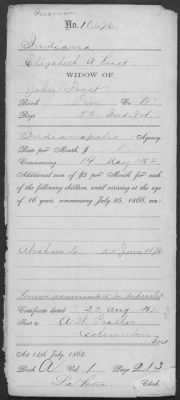 No. 10,476
Indiana
Elizabeth A Frost
WIDOW OF
John Frost
Rank Priv Co "D"
Regt 22 Ind. Vol.
Indianapolis Agency
Rate per Month $ 8
Commencing 19 May 1862
Additional sum of $2 per Month for each
of the following children, until arriving at the age
of 16 years, commencing July 25, 1866, viz:
Certificate dated 23 Aug
Sent to A W Prather
Columbus
Ind
Act 14th July, 1862.
Book A Vol. 1 Page 213
Clerk.